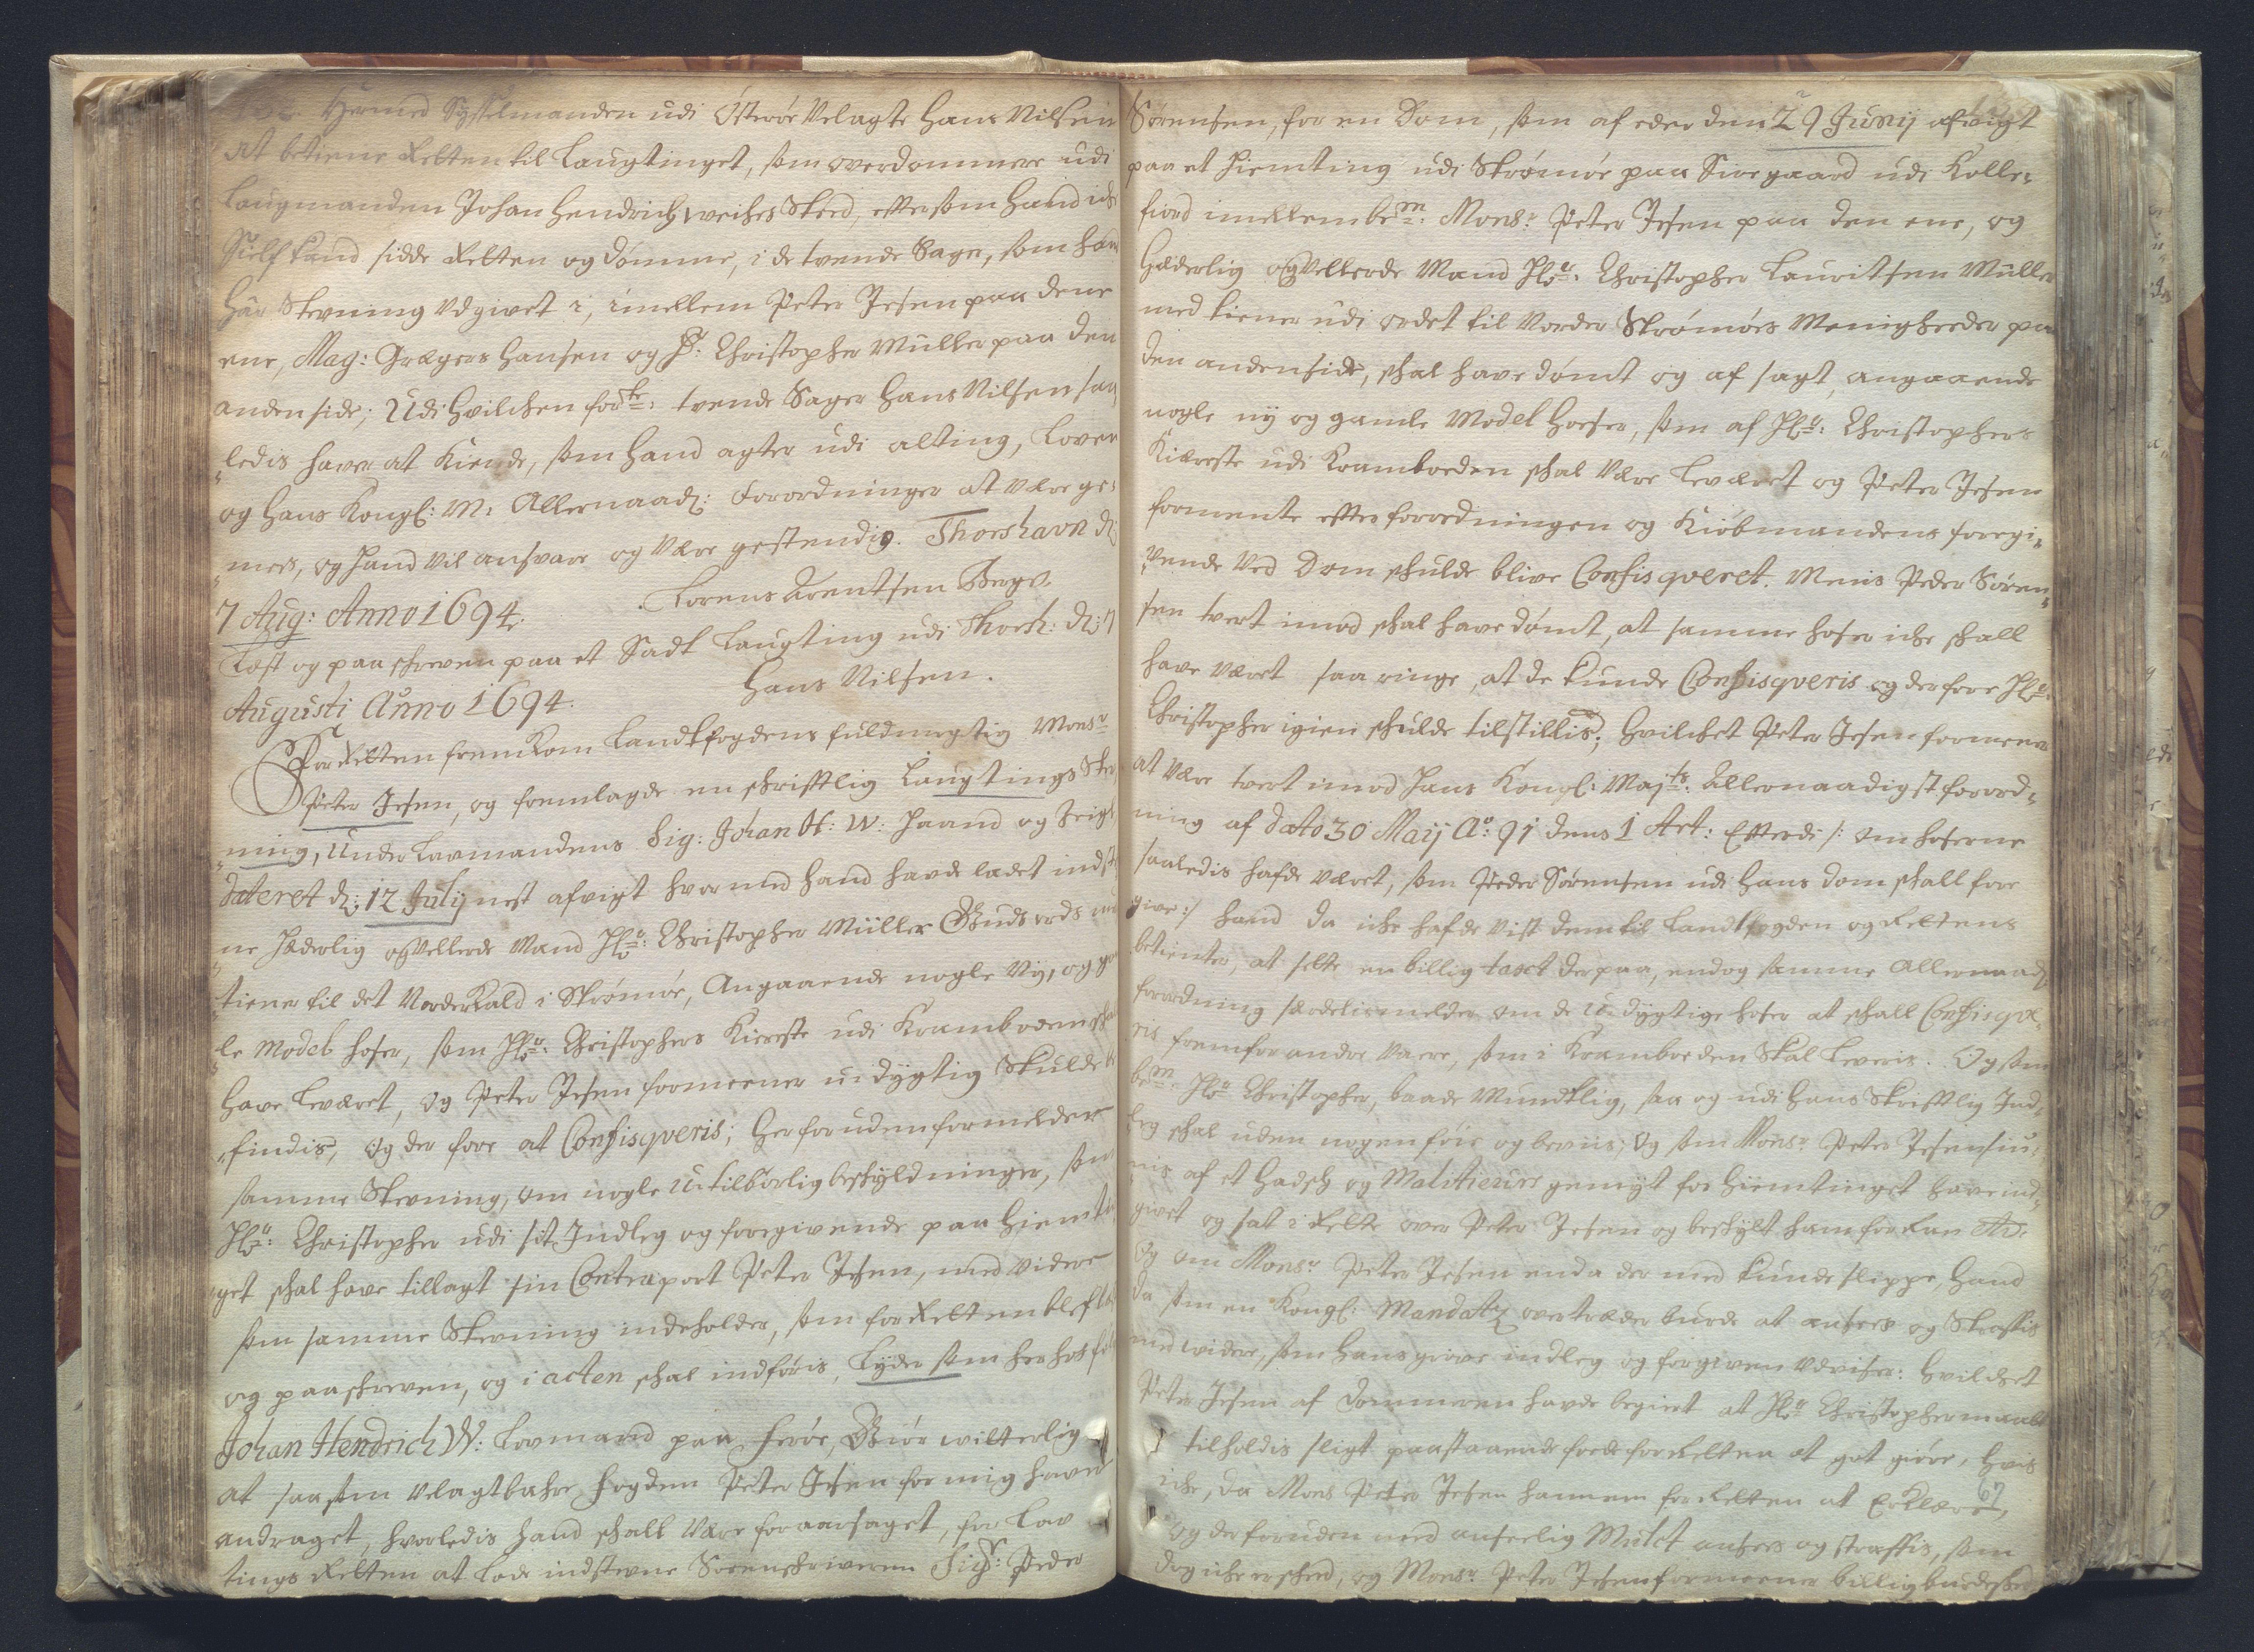 Hermed Sysselmanden udi Österöe Velagte Hans Nilsen
At betiene Retten til Laugtinget, som overdommere udi
Laugmanden Johan Hendrich weihes Sted, efftersom Hand ich
Sielf kand sidde Retten og dömme, i de tvende Sager, som han
Har Stevning Udgivet i, imellem Peter Jesen paa dene
ene, Mag: Grægers Hansen og Hr: Christopher Muller paa den
anden side; Udi Hvilchen for.te: tvende Sager Hans Nilsen saa„
„ledis haver at Kiende, som Hand agter udi alting, Loven
og Hans Kongl: M: Allernaad: Forordninger at være ge„
„mes, og Hand vil ansvare og være gestendig. Thorshavn d:
7 Aug: Anno 1694. Lorens Arentsen Berge.
Læst og paaschreven paa et Sadt Laugting udi Thorsh: d: 7
Augusti Anno 1694. Hans Nilsen.
For Retten fremkom Landtfogdens fuldmegtig Monsr
Peter Jesen, og fremlagde en schrifftlig Laugtings Stev
„ning, Under Lavmandens Sig: Johan H: W: Haand og Seigl
dateret d: 12 Julij nest afvigt hvormed hand havde ladet indste
ne Hæderlig og Vellerde Mand Hr: Christopher Müller Guds ords
tiener til det Norder Kald i Strömöe, Angaaende nogle Ny, og gam
le Model hoser, som Hr: Christophers Kiereste udi Kramboden schal
have Leveret, og Peter Jesen formeener udygtig Skulde be
„findis, og der fore at Confisqveris; Herforuden formelder
samme Stevning, om nogle Utilbörlig beskyldninger, som
Hr: Christopher udi sit Indleg og foregivende paa Hiemtin
„get schal have tillagt sin Contrapart Peter Jesen, med videre
som samme Stevning indeholder, som for Retten blef læst
og paaschreven, og i acten schal indföris, Lyder som her hos fölger
Johan Hendrich W: Lovmand paa Feröe, Giör witterlig
At saasom Velagtbahre Fogden Peter Jesen for mig haver
andraget, hvorledis hand schall være foraarsaget, for Lav
tings Retten at lade indstevne Sorenschriveren Sigr: Peder
Sörensen, for en Dom, som af eder den 29 Junij afvigt
paa et Hiemting udi Strömöe paa Sioegaard udi Kolle„
fiord imellem bem: Monsr Peter Jesen paa den ene, og
Hæderlig og Vellerde Mand Hr: Christopher Lauritsen Müller
med tiener udi ordet til Norder Strömöes Menigheder paa
den anden side, schal have dömt og af sagt, angaaende
nogle ny og gamle Model Hoser, som af Hr: Christophers
Kiæreste udi Kramboeden schal være Leveret og Peter Jesen
formente effter forordningen og Kiöbmandens foregi„
„vende ved Dom schulde blive Confisqveret. Mens Peder Sören„
sen tvert imod schal have dömt, at samme hoser iche schall
have været saa ringe, at de kunde Confisqveris og derfore Hr:
Christopher igien schulde tilstillis; Hvilchet Peter Jesen formeener
at være tvert imod Hans Kongl: Mayts: Allernaadigst forord„
ning af dato 30 Maij Ao: 91 dens 1 Art: Efterdi /: om hoserne
saaledis hafde været, som Peder Sörensen udi Hans dom schall fore
give :/ Hand da iche hafde vist dem til Landfogden og Rettens
betienter, at sette en billig taxt derpaa, endog samme Allernaad
forordning særdelis melder om de udygtige hoser at schall Confisqve„
ris fremfor andre Vaere, som i Kramboeden Skal Leveris. Og som
bem: Hr Christopher, baade Mundtlig, saa og udi Hans Skrifftlig Ind„
leg schal uden nogen föie og beviis; Og som Monsr Peter Jesen siu„
nis af et Hadsch og Malitieuse gemyt for Hiemtinget have ind„
givet og sat i Rette over Peter Jesen og beschylt ham for
Og om Monsr Peter Jesen enda der med kunde slippe, Hand
da som en Kongl: Mandatz overtræder burde at ansees og Straffis
med widere, som Hans grove indleg og forgiven Udviser: Hvilchet
Peter Jesen af Dommeren havde begiert at Hr Christopher maatte
tilholdis sligt paastaaende forde for Retten at got giöre, Hvis
iche, da Mons Peter Jesen hannem for Retten at Erklære,
og derforuden med anseelig Mulct ansees og straffis, som
dog iche er scheed, og Monsr: Peter Jesen formeener billig burde